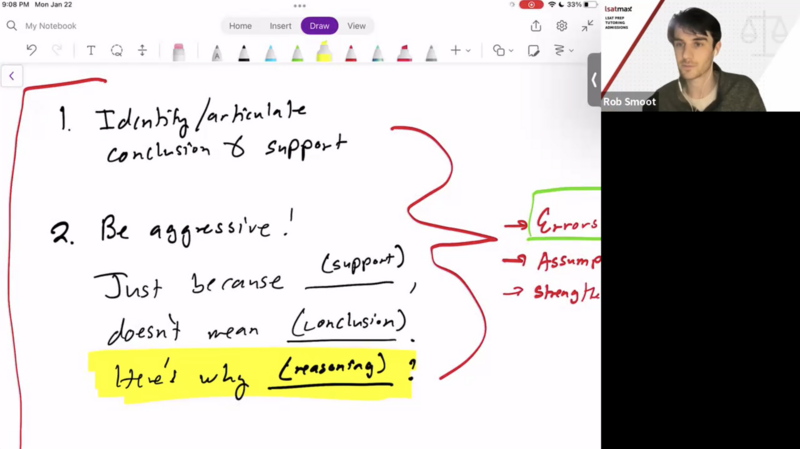 9:08 PM Mon Jan 22
33%
My Notebook
Home Insert Draw View
lsatmax
LSAT PREP
TUTORING
ADMISSIONS
Rob Smoot
1. Identity/articulate
conclusion & support
2. Be aggressive!
Just because (support),
doesn't mean (conclusion).
Here's why (reasoning)?
→ Errors
→ Assump
→ Strengthe